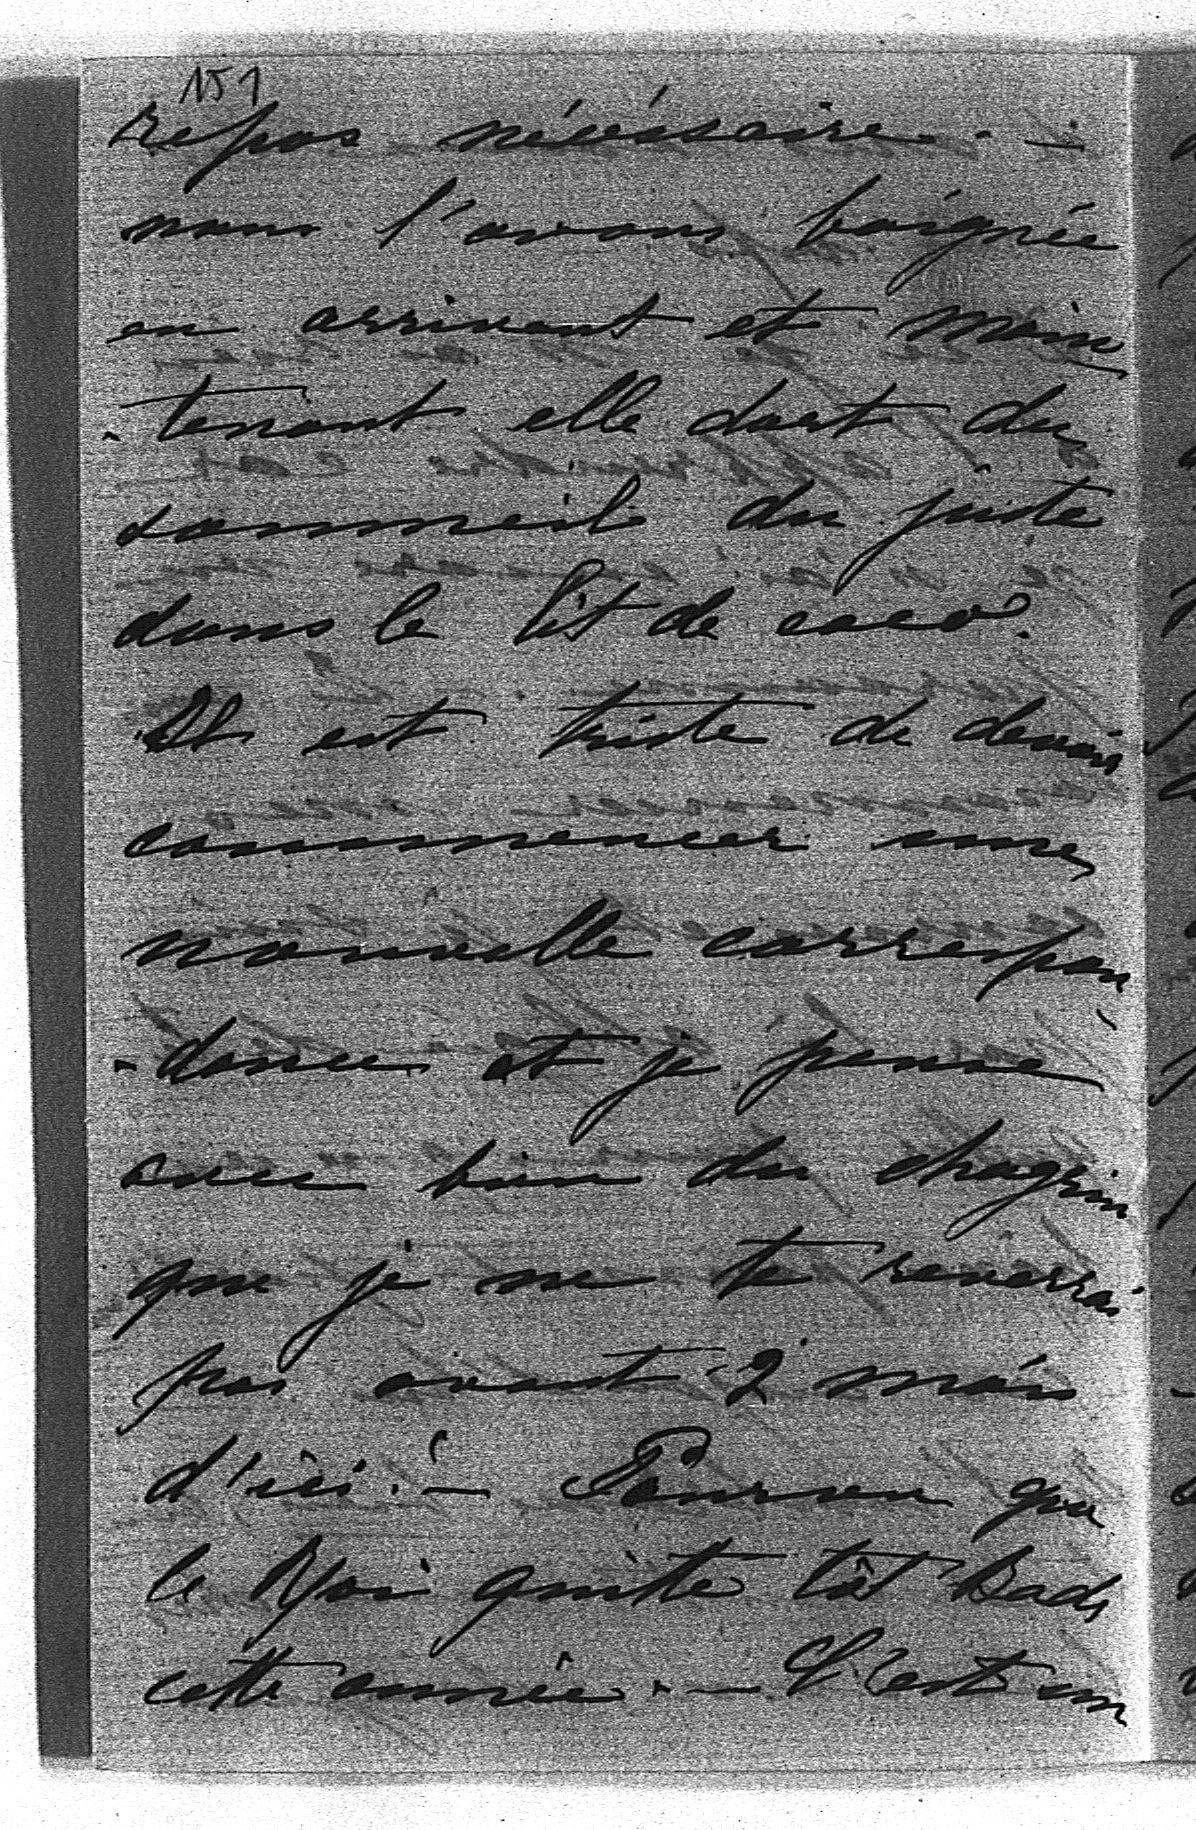 151
repos nécéssaire. —
nous l'avons baignée
en arrivant et main
-tenant elle dort du
sommeil du juste
dans le lit de coco.
Il est triste de devoir
commencer une
nouvelle correspon
-dance et je pense
avec bien du chagrin
que je ne te reverrai
pas avant 2 mois
d'ici. — Pourvu que
le Roi quitte tôt Bade
cette année. — C'est un